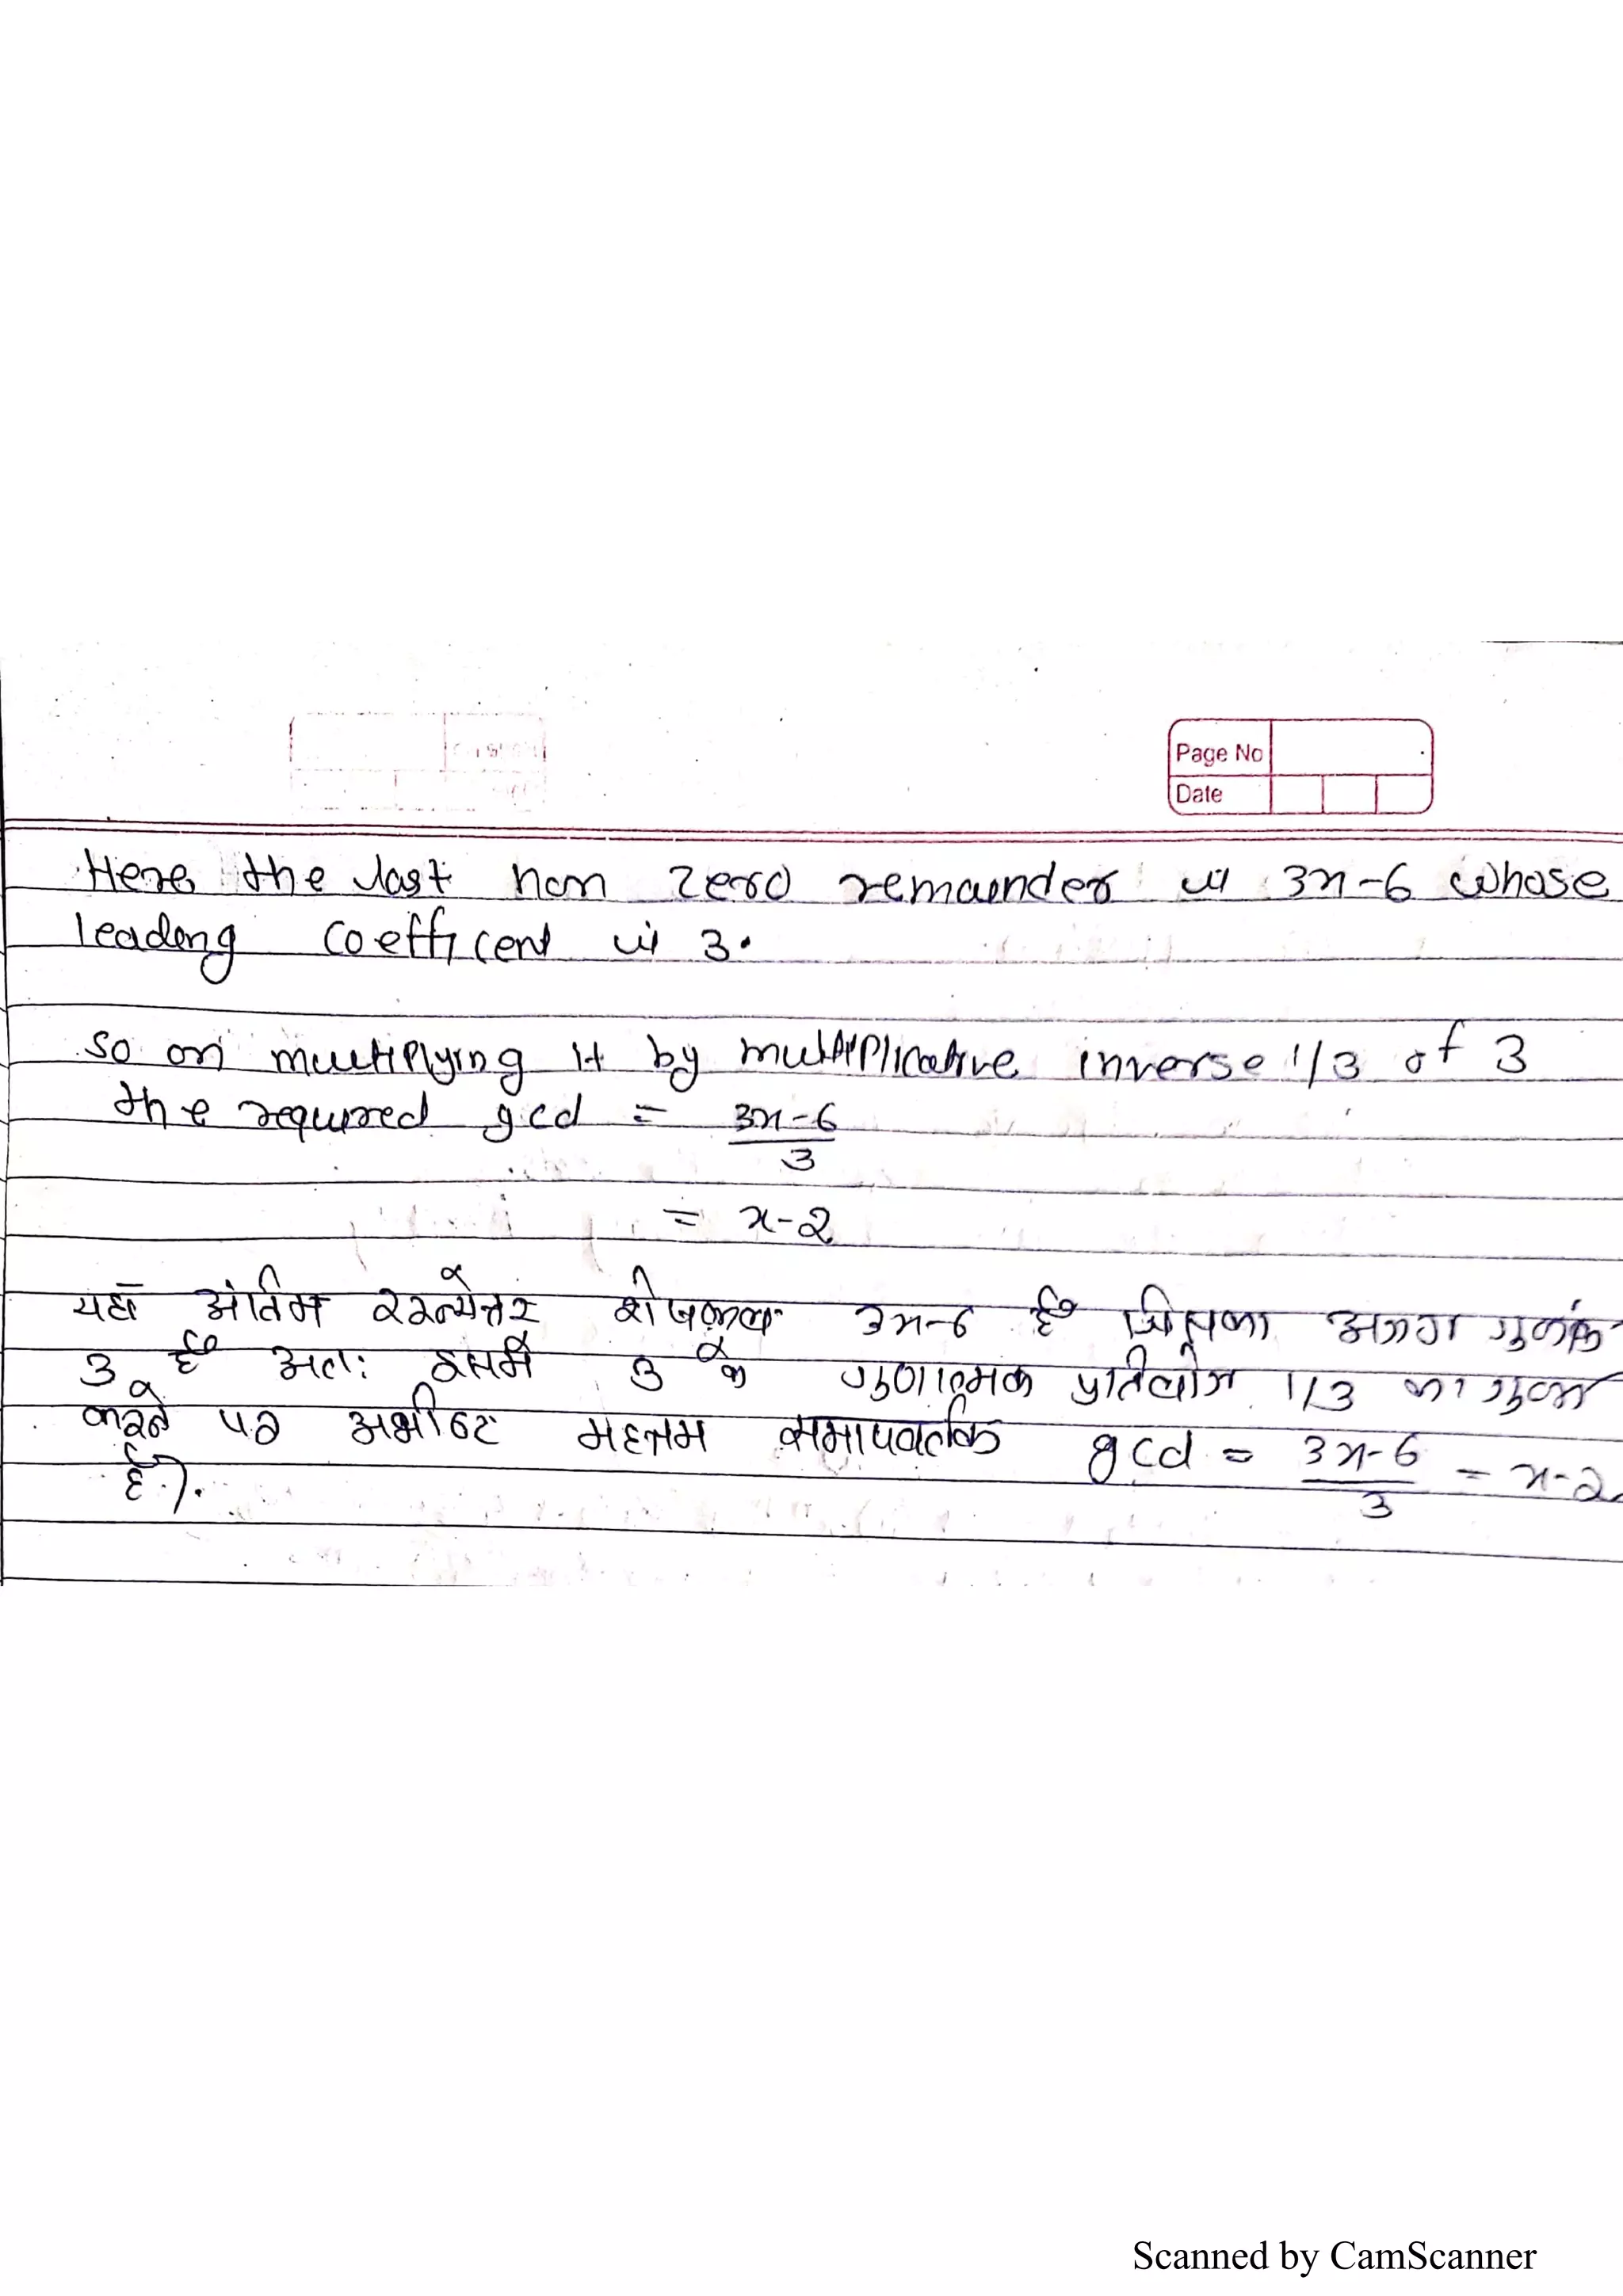 Page No
Date
Here the last non zero remainder is 3x-6 whose
leading coefficent is 3.
so on multiplying it by multiplicative inverse 1/3 of 3
the required gcd = 3x-6
3
= x-2
यहाँ अंतिम शून्येत्तर शेषफल 3x-6 है जिसका अग्रग गुणांक
3 है अतः इसमें 3 के गुणात्मक प्रतिलोम 1/3 का गुणा
करने पर अभीष्ट महत्तम समापवर्तक gcd = 3x-6 = x-2
3
है।.
Scanned by CamScanner